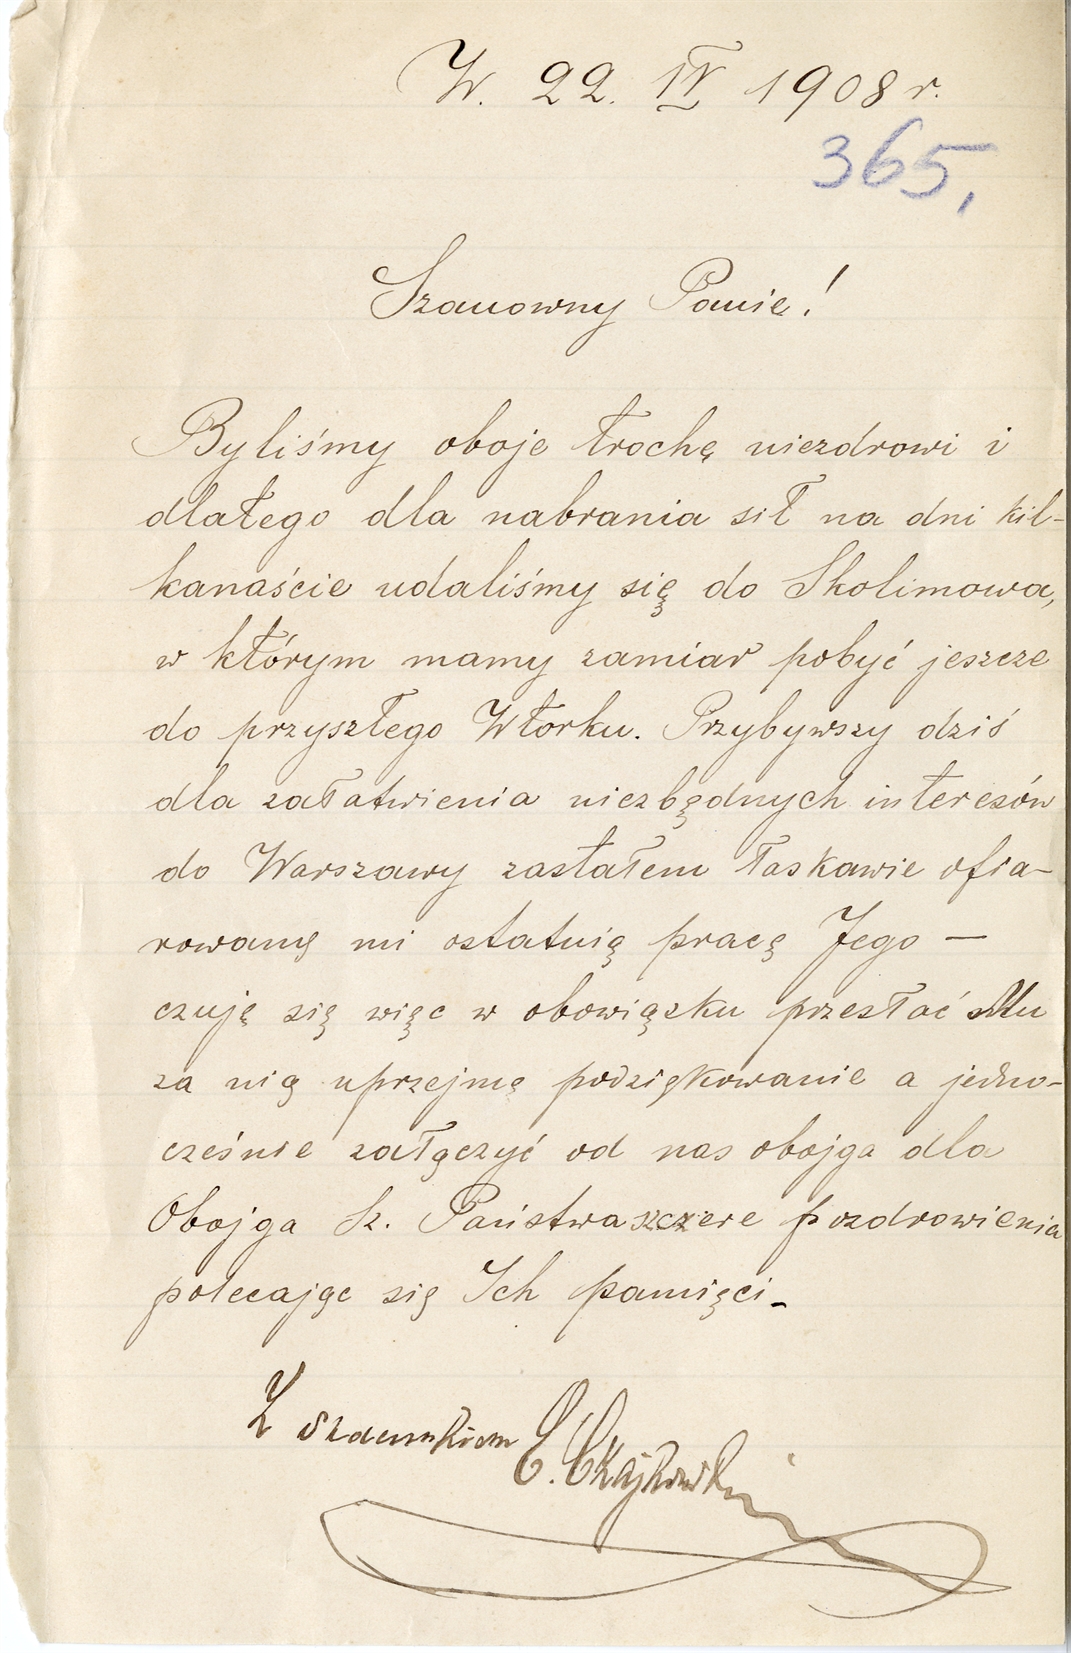 W. 22. IV 1908 r.
365,
Szanowny Panie!
Byliśmy oboje trochę niezdrowi i
dlatego dla nabrania sił na dni kil-
kanaście udaliśmy się do Skolimowa,
w którym mamy zamiar pobyć jeszcze
do przyszłego Wtorku. Przybywszy dziś
dla załatwienia niezbędnych interesów
do Warszawy zastałem łaskawie ofia-
rowaną mi ostatnią pracę Jego —
czuję się więc w obowiązku przesłać Mu
za nią uprzejmę podziękowanie a jedno-
cześnie załączyć od nas obojga dla
Obojga Sz. Państwa szczere pozdrowienia
polecając się Ich pamięci_
Z szacunkiem E. Czajkowski